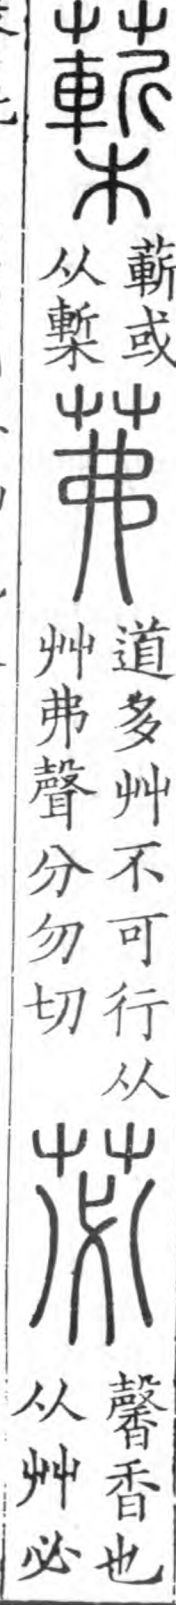 藆
蔪或
从槧
茀
道多艸不可行从
艸弗聲分勿切
苾
馨香也
从艸必